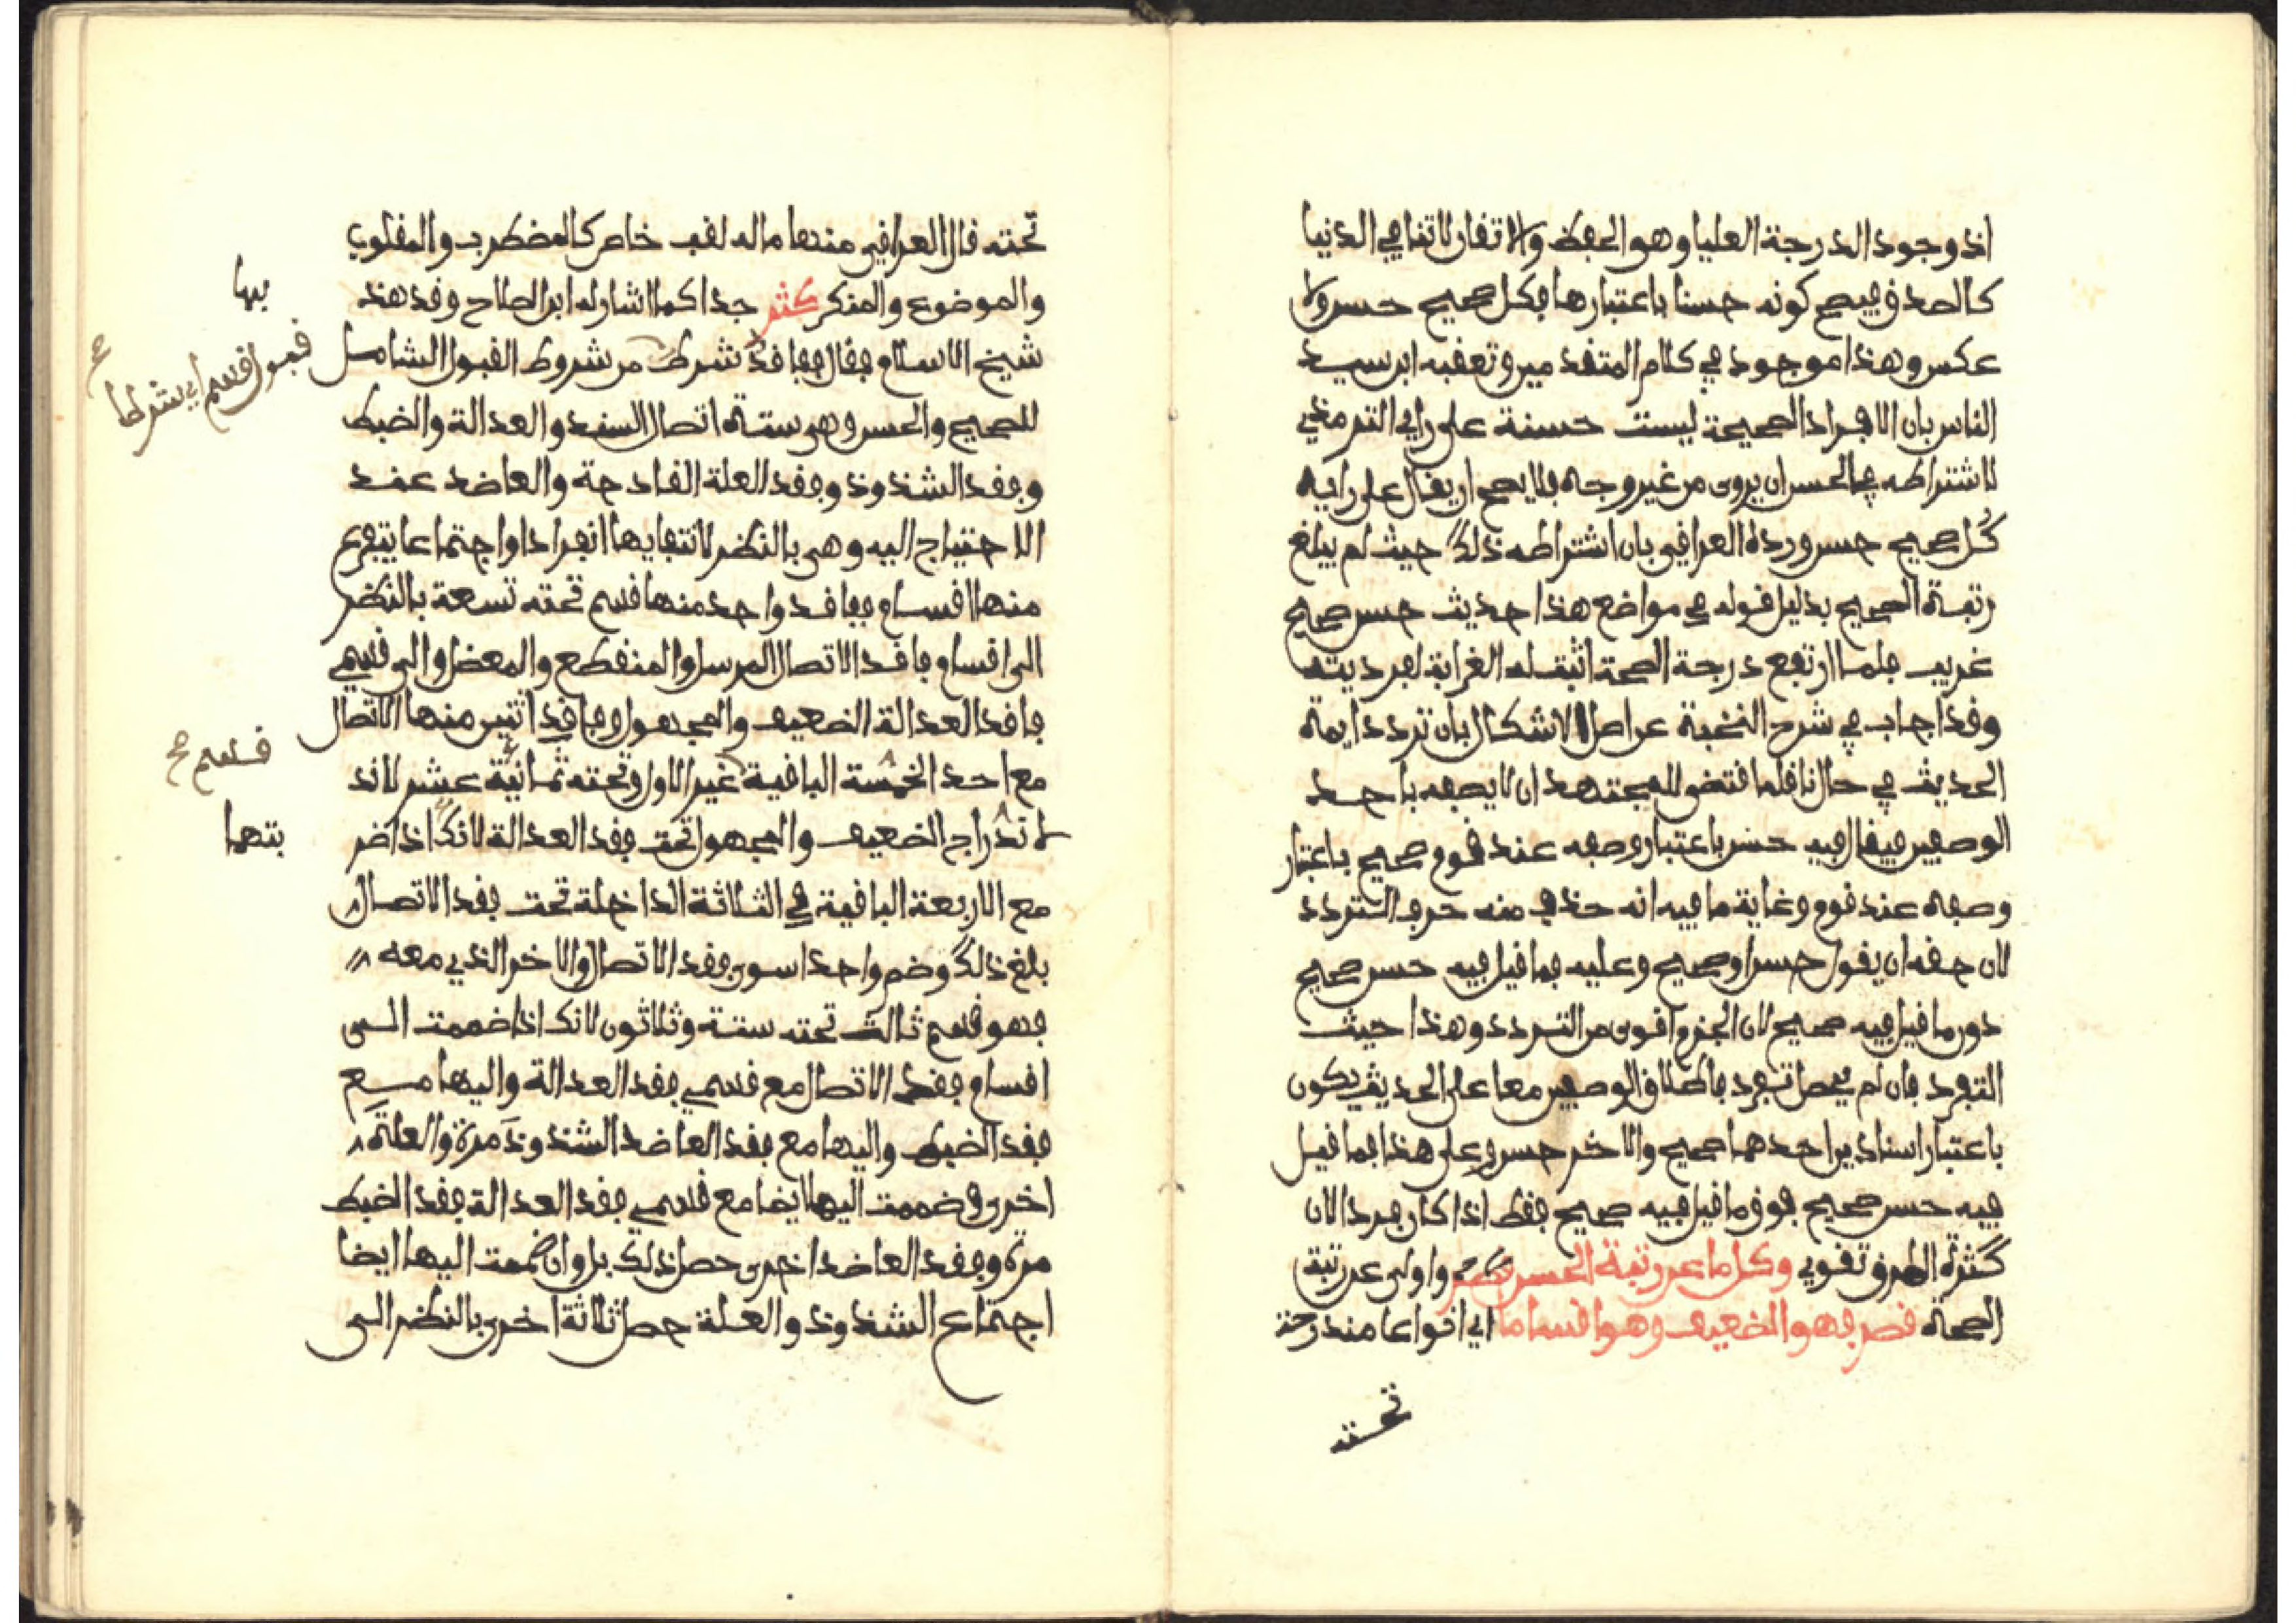 اذ وجود الدرجة العليا وهو الحفظ والاتقان لا تنافي الدنيا
كالصدق فيصح كونه حسنا باعتبارها فكل صحيح حسن ولا
عكس وهذا موجود في كلام المتقدمين وتعقبه ابن سيد
الناس بان الافراد الصحيحة ليست حسنة على راي الترمذي
لاشتراطه في الحسن ان يروى من غير وجه فلا يصح ان يقال على رايه
كل صحيح حسن ورده العراقي بان اشتراطه ذلك حيث لم يبلغ
رتبة الصحيح بدليل قوله في مواضع هذا حديث حسن صحيح
غريب فلما ارتفع درجة الصحة اثبت له الغرابة لفرديته
وقد اجاب في شرح النخبة عن اصل الاشكال بان تردد ايمة
الحديث في حال ناقله اقتضى للمجتهد ان لا يصفه باحد
الوصفين فيقال فيه حسن باعتبار وصفه عند قوم صحيح باعتبار
وصفه عند قوم وغاية ما فيه انه حذف منه حرف التردد
لان حقه ان يقول حسن او صحيح وعليه فما قيل فيه حسن صحيح
دون ما قيل فيه صحيح لان الجزم اقوى من التردد وهذا حيث
التفرد فان لم يحصل تفرد فاطلاق الوصفين معا على الحديث يكون
باعتبار اسنادين احدهما صحيح والاخر حسن وعلى هذا فما قيل
فيه حسن صحيح فوق ما قيل فيه صحيح فقط اذا كان فردا لان
كثرة الطرق تقوي وكل ما عن رتبة الحسن قصر واولى عن رتبة
الصحة قصر فهو الضعيف وهو اقساما اي انواعا مندرجة
تحته
تحته قال العراقي منها ما له لقب خاص كالمضطرب والمقلوب
والموضوع والمنكر كثر جدا كما اشار له ابن الصلاح وقد هذ
بها
شيخ الاسلام فقال ففاقد شرط من شروط القبول الشامل
قبول قسم اي شرطا صح
للصحيح والحسن وهي ستة اتصال السند والعدالة والضبط
وفقد الشذوذ وفقد العلة القادحة والعاضد عند
الاحتياج اليه وهي بالنظر لانتفايها انفرادا واجتماعا يتفرع
منها اقسام ففاقد واحد منها قسم تحته تسعة بالنظر
الى اقسام فاقد الاتصال المرسل والمنقطع والمعضل والى قسمي
فاقد العدالة الضعيف والمجهول وفاقد اثنين منها الاتصال
قسم صح
مع احد الخمسة الباقية غير الاول وتحته ثمانية عشر لاند
لاندراج الضعيف والمجهول تحت فقد العدالة لانك اذا ضر
بتهما
مع الاربعة الباقية في الثلاثة الداخلة تحت فقد الاتصال
بلغ ذلك وضم واحدا سوى فقد الاتصال والاخر الذي معه
فهو قسم ثالث تحته ستة وثلاثون لانك اذا ضممت الى
اقسام فقد الاتصال مع قسمي فقد العدالة واليها مع
فقد الضبط واليها مع فقد العاضد الشذوذ مرة والعلة
اخرى وضممت اليها ايضا مع قسمي فقد العدالة فقد الضبط
مرة وفقد العاضد اخرى حصل ذلك بل وان ضممت اليها ايضا
اجتماع الشذوذ والعلة حصل ثلاثة اخرى بالنظر الى